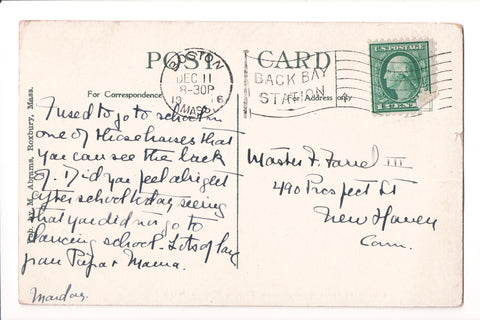 POST CARD
BOSTON
DEC 11
8-30P
19 16
MASS.
BACK BAY
STATION
U.S. POSTAGE
1 CENT 1
For Correspondence
For Address only
Pub. by M. Abrams, Roxbury, Mass.
I used to go to school in
one of those houses that
you can see the back
of. Did you feel alright
after school today, seeing
that you did not go to
dancing school - Lots of love
from Papa & Mama.
Monday.
Master F. Farrel III
490 Prospect St
New Haven
Conn.